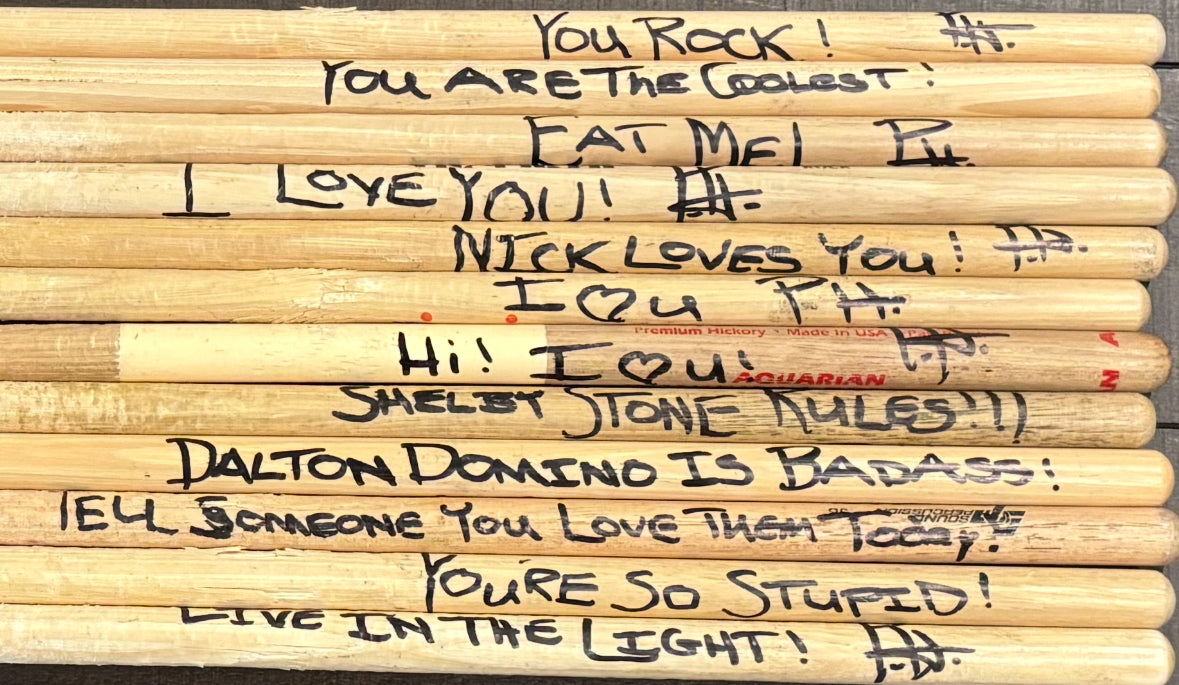 You Rock!
You ARE THE COOLEST!
EAT ME!
I LOVE YOU!
NICK LOVES YOU!
I ♡ u
Premium Hickory · Made in USA
Hi! I ♡ u!
AQUARIAN
SHELBY STONE RULES!!!
DALTON DOMINO IS BADASS!
TELL SOMEONE YOU LOVE THEM TODAY!
YOU'RE SO STUPID!
LIVE IN THE LIGHT!